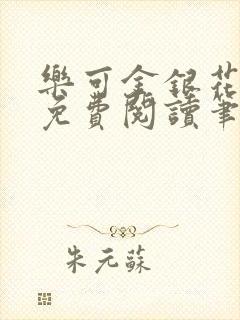 樂可金銀花
免費閱讀筆
朱元蘇